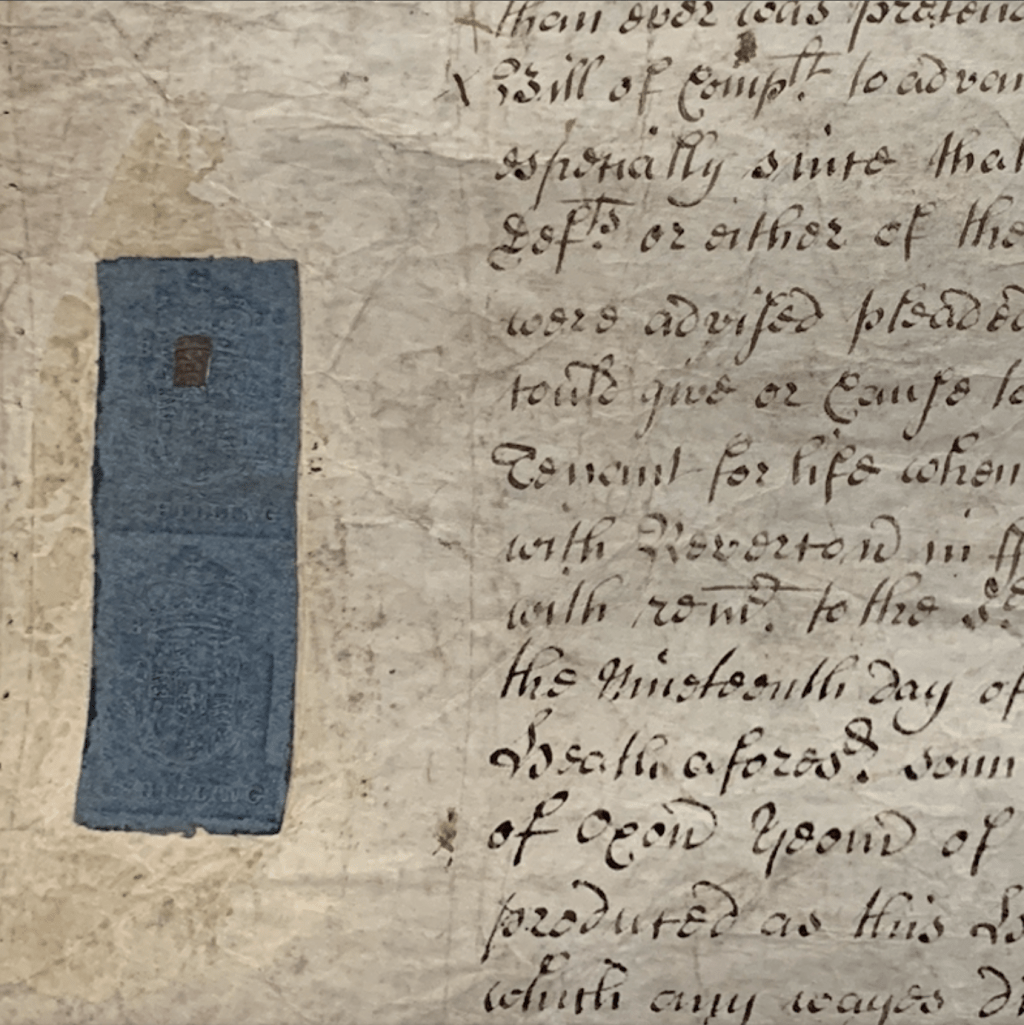 than ever was pretend
Bill of Compt. to advan
especially since that
Defts. or either of the
were advised pleaded
could give or Cause to
Tenant for life when
with Reverton in ff
with remr. to the Sd.
the Nineteenth day of
Heath aforesd. som
of Oxon Yeom of
produced as this
which any wayes di
VI SHILLING